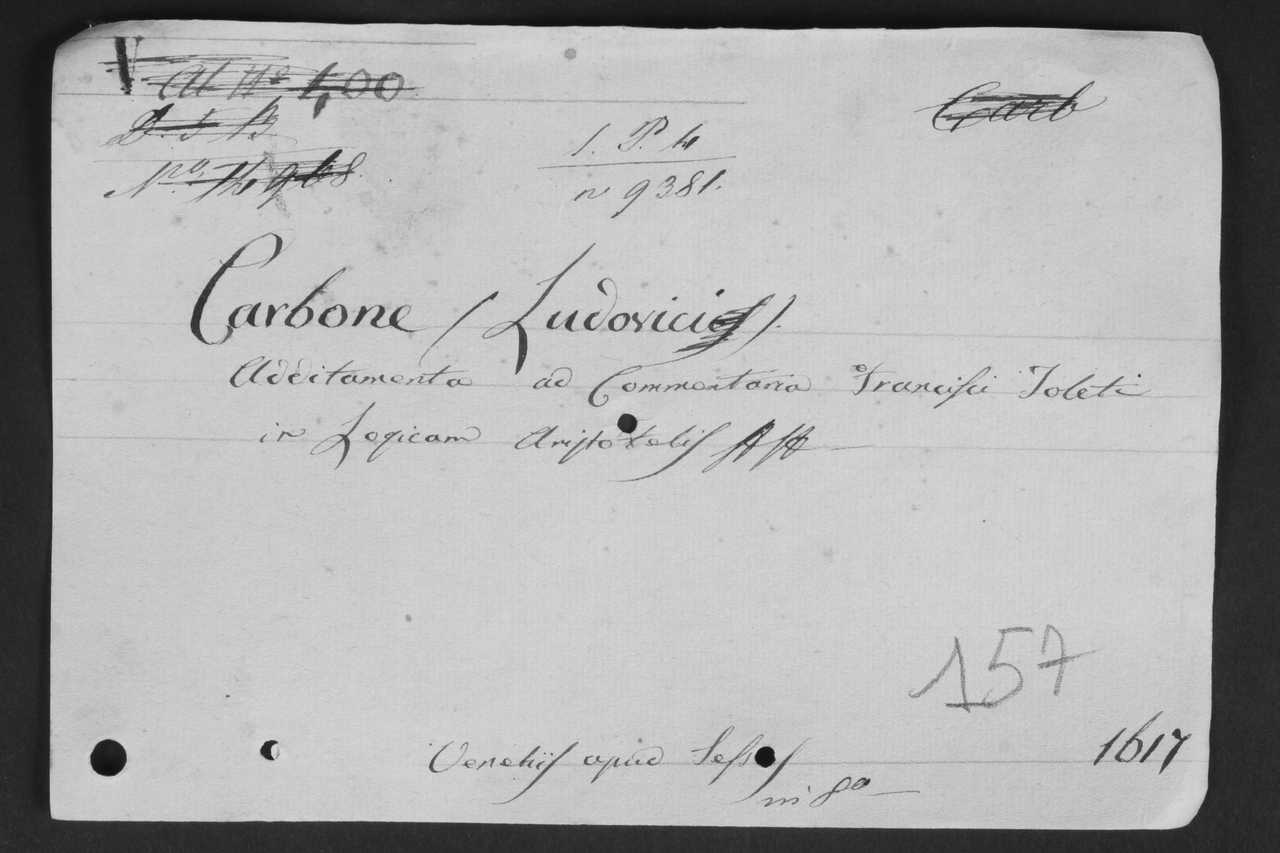 V
400
Nº 14968.
Carb
1. P. 4
n 9381.
Carbone (Ludovici).
Additamenta ad Commentaria Francisci Toleti
in Logicam Aristotelis
157
Venetiis apud
1617
in 8º